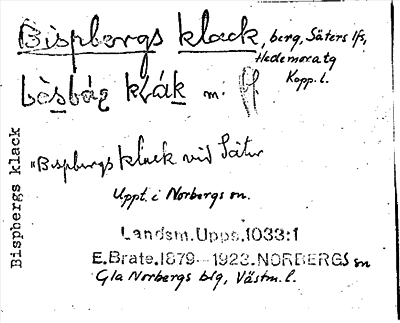 Bispbergs klack, berg, Säters lfs,
Hedemora tg
Kopp. l.
bòsbág klák m.
"Bispbergs klack vid Säter
Uppt. i Norbergs sn.
Landsm.Upps.1033:1
E.Brate.1879-1923.NORBERGS sn
Gla Norbergs blg, Västm. l.
Bispbergs klack